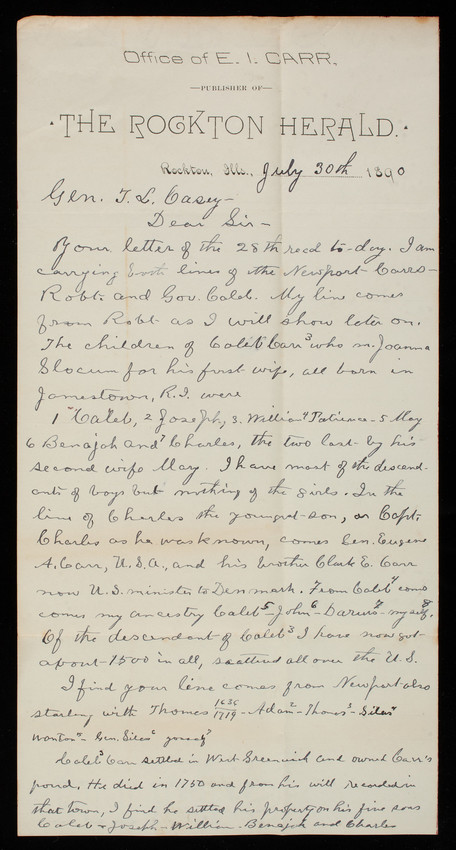 Office of E. I. CARR,
—PUBLISHER OF—
·THE ROCKTON HERALD.·
Rockton, Ills., July 30th 1890
Gen. T. L. Casey—
Dear Sir—
Your letter of the 28th recd to-day. I am
carrying both lines of the Newport Carrs—
Robt. and Gov. Caleb. My line comes
from Robt as I will show later on.
The children of Caleb Carr³ who m. Joanna
Slocum for his first wife, all born in
Jamestown, R.I. were
1 Caleb, 2 Joseph, 3. William 4 Patience - 5 May
6 Benajah and 7 Charles, the two last by his
second wife May. I have most of the descend-
ants of boys but nothing of the girls. In the
line of Charles the youngest son, or Capt.
Charles as he was known, comes Gen. Eugene
A. Carr, U.S.A., and his brother Clark E. Carr
now U.S. minister to Denmark. From Caleb⁴
comes my ancestry Caleb⁵- John⁶- Darius⁷- myself⁸.
Of the descendant of Caleb³ I have now got
about 1500 in all, scattered all over the U.S.
I find your line comes from Newport also
starting with Thomas 1636/1719 - Adam²- Thomas³- Silas⁴
Wanton⁵- Gen. Silas⁶ yourself⁷
Caleb³ Carr settled in West Greenwich and owned Carr's
pond. He died in 1750 and from his will recorded in
that town, I find he settled his property on his five sons
Caleb - Joseph - William - Benajah and Charles